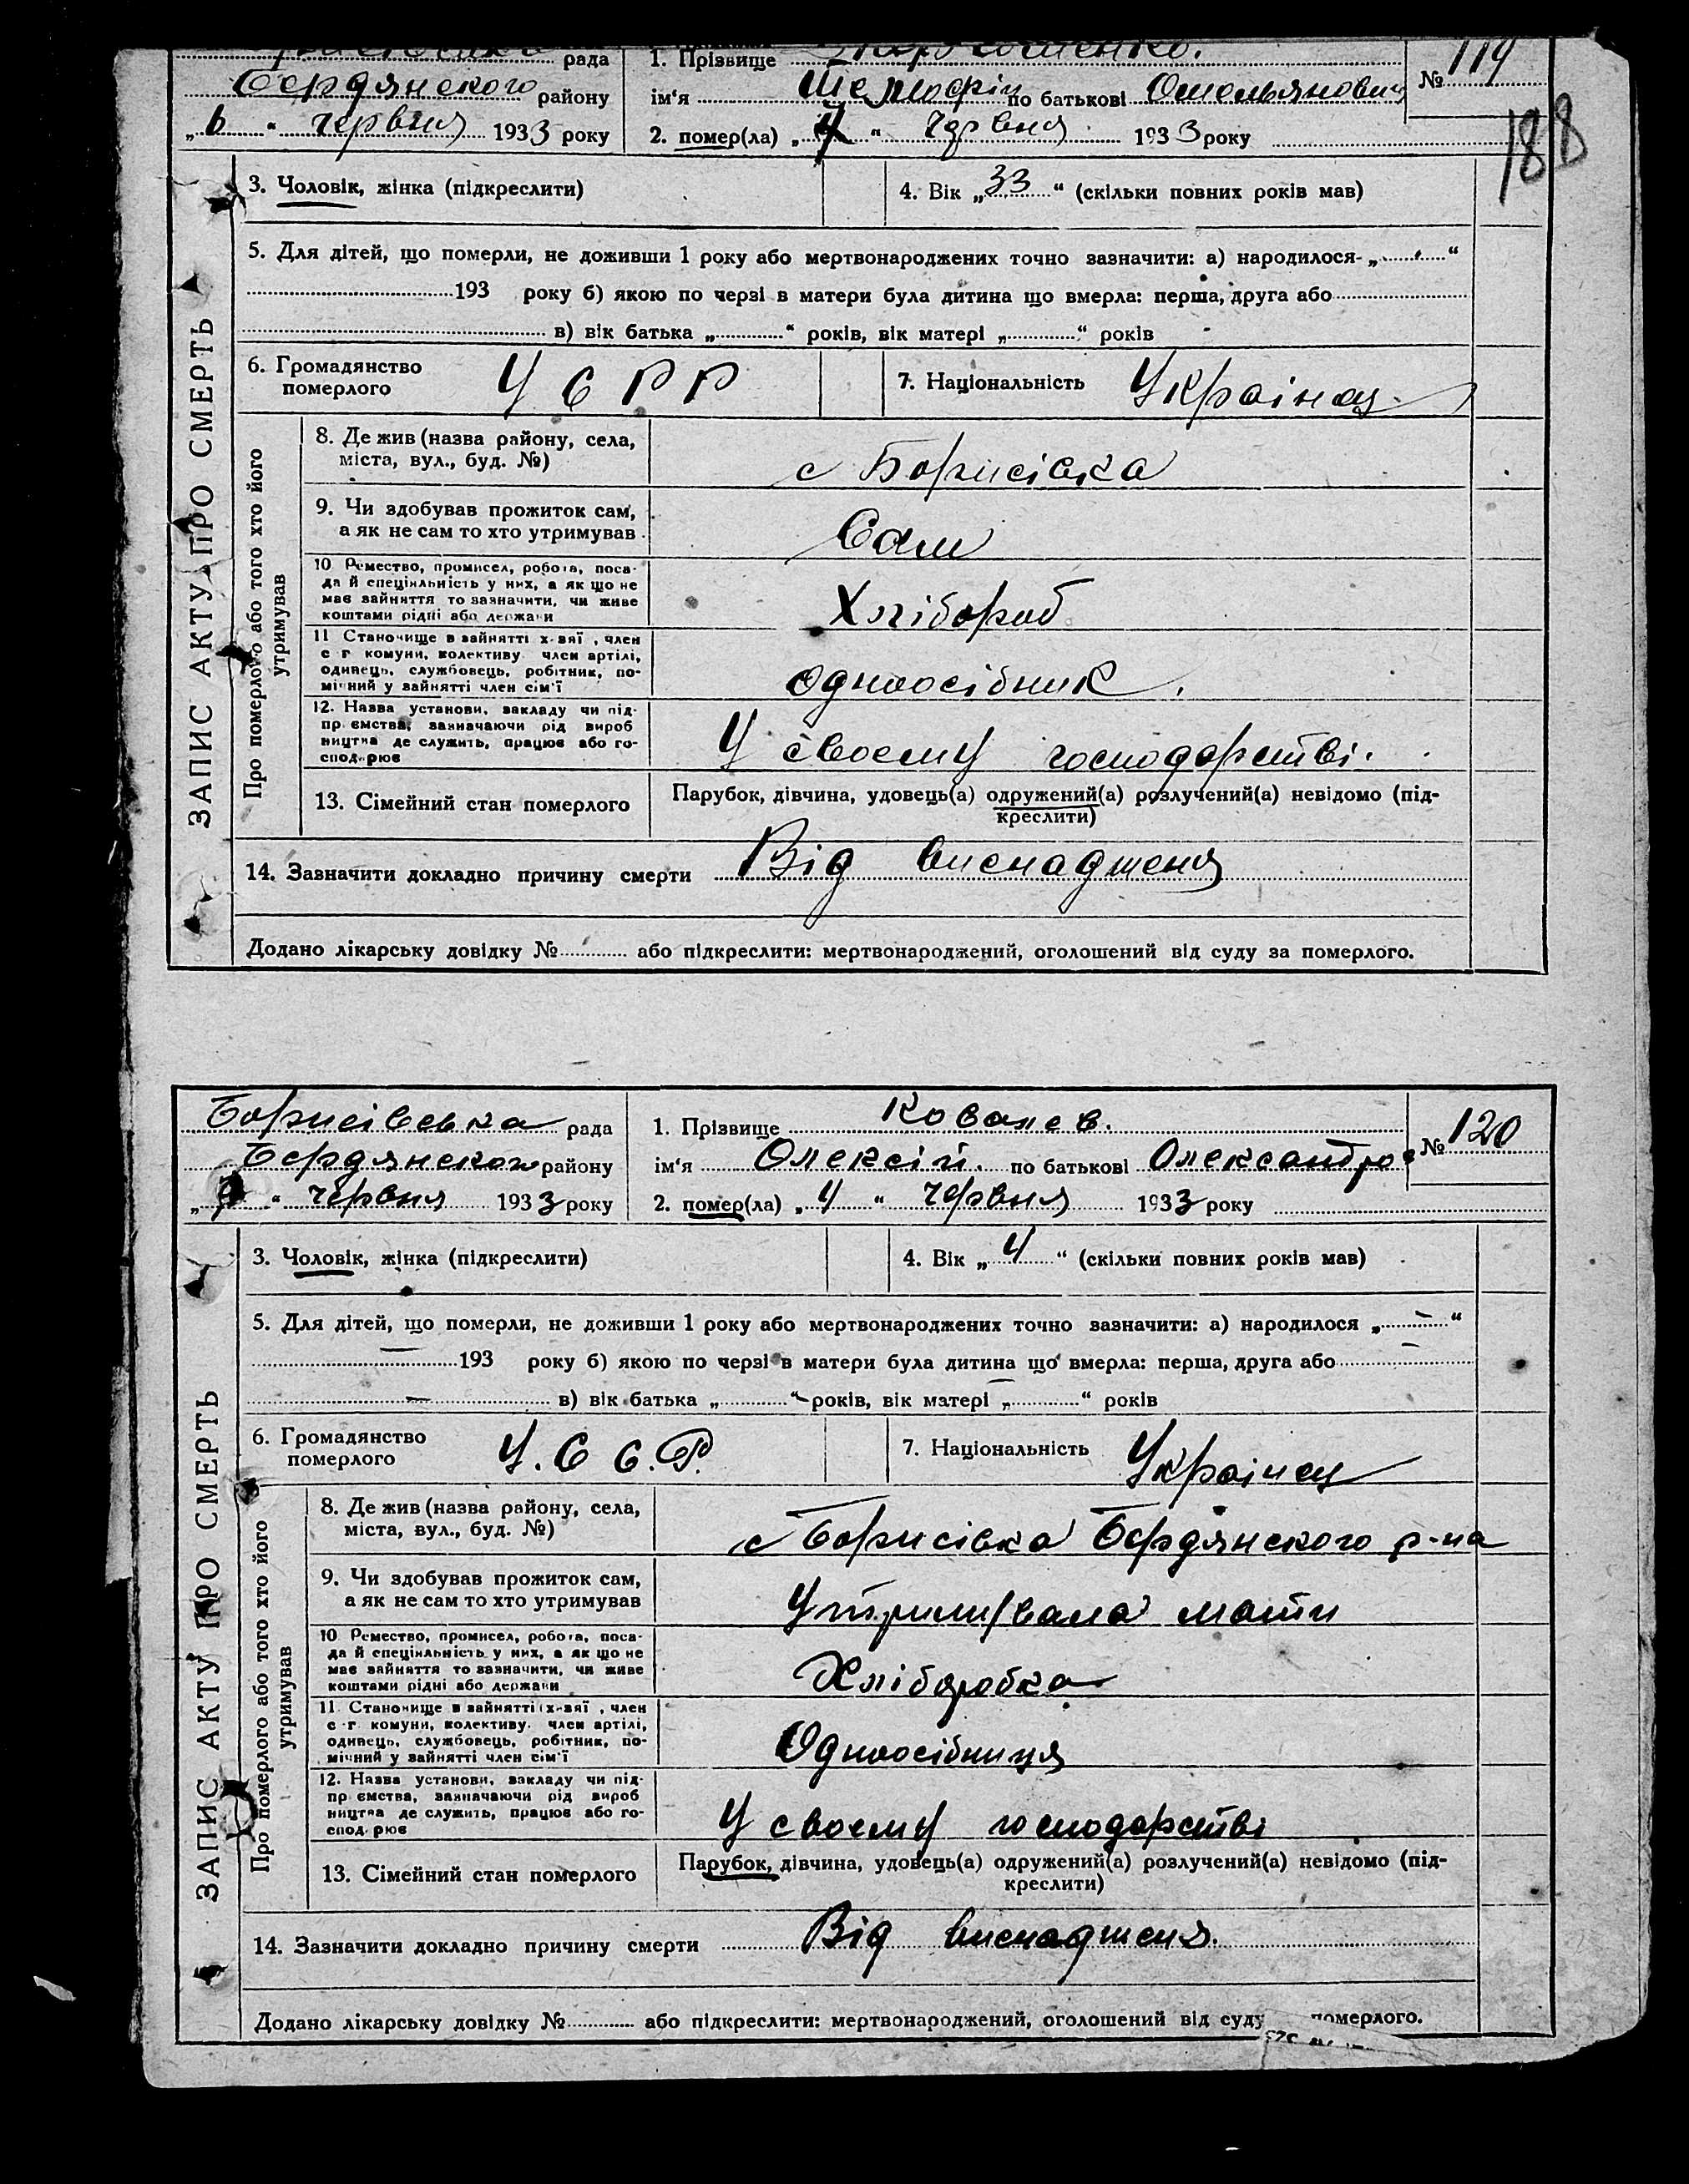 рада 1. Прізвище
Бердянского району ім‘я по батькові Омельянович № 119
„6“ червня 1933 року 2. помер(ла) „4“ червня 1933 року
188
3. Чоловік, жінка (підкреслити) 4. Вік „33“ (скільки повних років мав)
5. Для дітей, що померли, не доживши 1 року або мертвонароджених точно зазначити: а) народилося „ “
193 року б) якою по черзі в матери була дитина що вмерла: перша, друга або
в) вік батька „ “ років, вік матері „ “ років
6. Громадянство померлого УСРР 7. Національність Украінец
ЗАПИС АКТУ ПРО СМЕРТЬ
Про померлого або того хто його утримував
8. Де жив (назва району, села,
міста, вул., буд. №) с Борисівка
9. Чи здобував прожиток сам,
а як не сам то хто утримував Сам
10 Ремество, промисел, робота, поса-
да й спеціяльність у них, а як що не
має зайняття то зазначити, чи живе
коштами рідні або держави Хлібороб
11 Становище в зайнятті х-вяї, член
с г комуни, колективу член артілі,
одинець, службовець, робітник, по-
мічний у зайнятті член сім‘ї одноосібник.
12. Назва установи, закладу чи під-
пр ємства, зазначаючи рід вироб
ництва де служить, працює або го-
сподарює У своему господарстві.
13. Сімейний стан померлого Парубок, дівчина, удовець(а) одружений(а) розлучений(а) невідомо (під-
креслити)
14. Зазначити докладно причину смерти Від виснадженя
Додано лікарську довідку № або підкреслити: мертвонароджений, оголошений від суду за померлого.
Борисівська рада 1. Прізвище Ковалев. № 120
Бердянского району ім‘я Олексій. по батькові Олександров
червня 1933 року 2. помер(ла) „4“ червня 1933 року
3. Чоловік, жінка (підкреслити) 4. Вік „4“ (скільки повних років мав)
5. Для дітей, що померли, не доживши 1 року або мертвонароджених точно зазначити: а) народилося „–“
– 193 року б) якою по черзі в матери була дитина що вмерла: перша, друга або –
– в) вік батька „ “ – років, вік матері „–“ років
6. Громадянство померлого У.С.С.Р. 7. Національність Украінец
ЗАПИС АКТУ ПРО СМЕРТЬ
Про померлого або того хто його утримував
8. Де жив (назва району, села,
міста, вул., буд. №) с Борисівка Бердянского р-на
9. Чи здобував прожиток сам,
а як не сам то хто утримував Утримувала мати
10 Ремество, промисел, робота, поса-
да й спеціяльність у них, а як що не
має зайняття то зазначити, чи живе
коштами рідні або держави Хлібофобка
11. Становище в зайнятті х-вяї, член
с-г комуни, колективу член артілі,
одинець, службовець, робітник, по-
мічний у зайнятті член сім‘ї Одноосібниця
12. Назва установи, закладу чи під-
пр ємства, зазначаючи рід вироб
ництва де служить, працює або го-
спод рює У своему господарстві
13. Сімейний стан померлого Парубок, дівчина, удовець(а) одружений(а) розлучений(а) невідомо (під-
креслити)
14. Зазначити докладно причину смерти Від виснадженя.
Додано лікарську довідку № або підкреслити: мертвонароджений, оголошений від суду померлого.